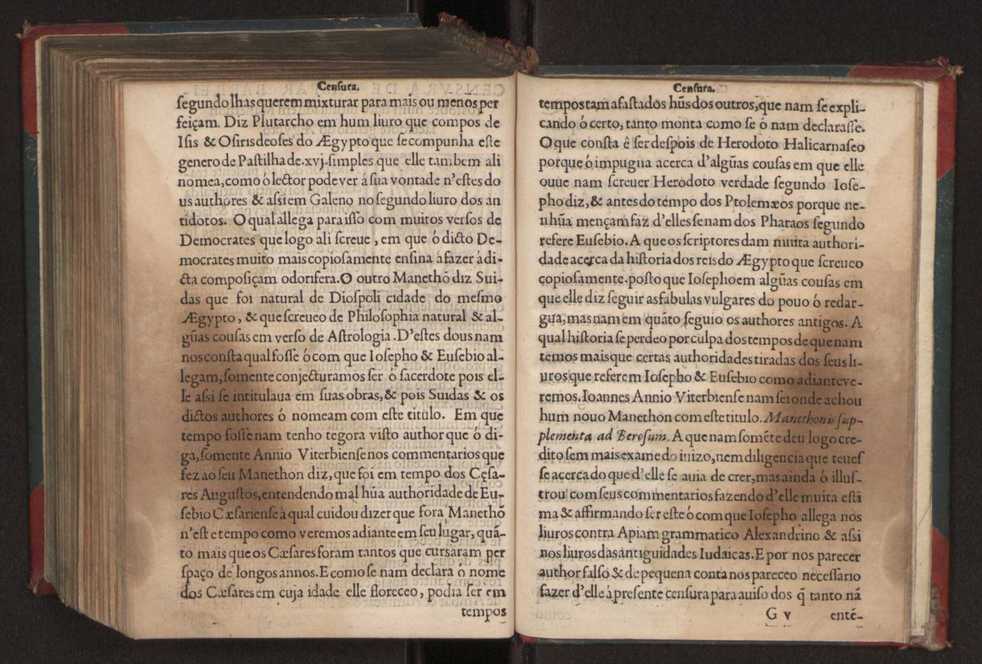 Censura.
segundo lhas querem mixturar para mais ou menos per
feiçam. Diz Plutarcho em hum liuro que compos de
Isis & Osiris deoses do Ægypto que se compunha este
genero de Pastilha de.xvj.simples que elle tambem ali
nomea, como ó lector pode ver á sua vontade n'estes do
us authores & assi em Galeno no segundo liuro dos an
tidotos. O qual allega para isso com muitos versos de
Democrates que logo ali screue, em que ó dicto De-
mocrates muito mais copiosamente ensina á fazer á di-
cta composiçam odorifera. O outro Manethõ diz Sui-
das que foi natural de Diospoli cidade do mesmo
Ægypto, & que screueo de Philosophia natural & al-
gũas cousas em verso de Astrologia. D'estes dous nam
nos consta qual fosse ó com que Iosepho & Eusebio al-
legam, somente conjecturamos ser ó sacerdote pois el-
le assi se intitulaua em suas obras, & pois Suidas & os
dictos authores ó nomeam com este titulo. Em que
tempo fosse nam tenho tegora visto author que ó di-
ga, somente Annio Viterbiense nos commentarios que
fez ao seu Manethon diz, que foi em tempo dos Cęsa-
res Augustos, entendendo mal hũa authoridade de Eu-
sebio Cæsariense á qual cuidou dizer que fora Manethõ
n'este tempo como veremos adiante em seu lugar, quã-
to mais que os Cæsares foram tantos que cursaram per
spaço de longos annos. E como se nam declara ó nome
dos Cæsares em cuja idade elle floreceo, podia ser em
tempos
Censura.
tempos tam afastados hũs dos outros, que nam se expli-
cando ó certo, tanto monta como se ó nam declarasse.
O que consta é ser despois de Herodoto Halicarnaseo
porque ó impugna acerca d'algũas cousas em que elle
ouue nam screuer Herodoto verdade segundo Iose-
pho diz, & antes do tempo dos Ptolemæos porque ne-
nhũa mençam faz d'elles senam dos Pharaos segundo
refere Eusebio. A que os scriptores dam muita authori-
dade acęrca da historia dos reis do Ægypto que screueo
copiosamente. posto que Iosepho em algũas cousas em
que elle diz seguir as fabulas vulgares do pouo ó redar-
gua, mas nam em quãto seguio os authores antigos. A
qual historia se perdeo por culpa dos tempos de que nam
temos mais que certas authoridades tiradas dos seus li-
uros que referem Iosepho & Eusebio como adiante ve-
remos. Ioannes Annio Viterbiense nam sei onde achou
hum nouo Manethon com este titulo. Manethonis sup-
plementa ad Berosum. A que nam somẽte deu logo cre-
dito sem mais exame do iuizo, nem diligencia que teues
se acerca do que d'elle se auia de crer, mas ainda ó illus-
trou com seus commentarios fazendo d'elle muita esti
ma & affirmando ser este ó com que Iosepho allega nos
liuros contra Apiam grammatico Alexandrino & assi
nos liuros das antiguidades Iudaicas. E por nos parecer
author falso & de pequena conta nos pareceo necessario
fazer d'elle á presente censura para auiso dos q̃ tanto nã
G v enté-